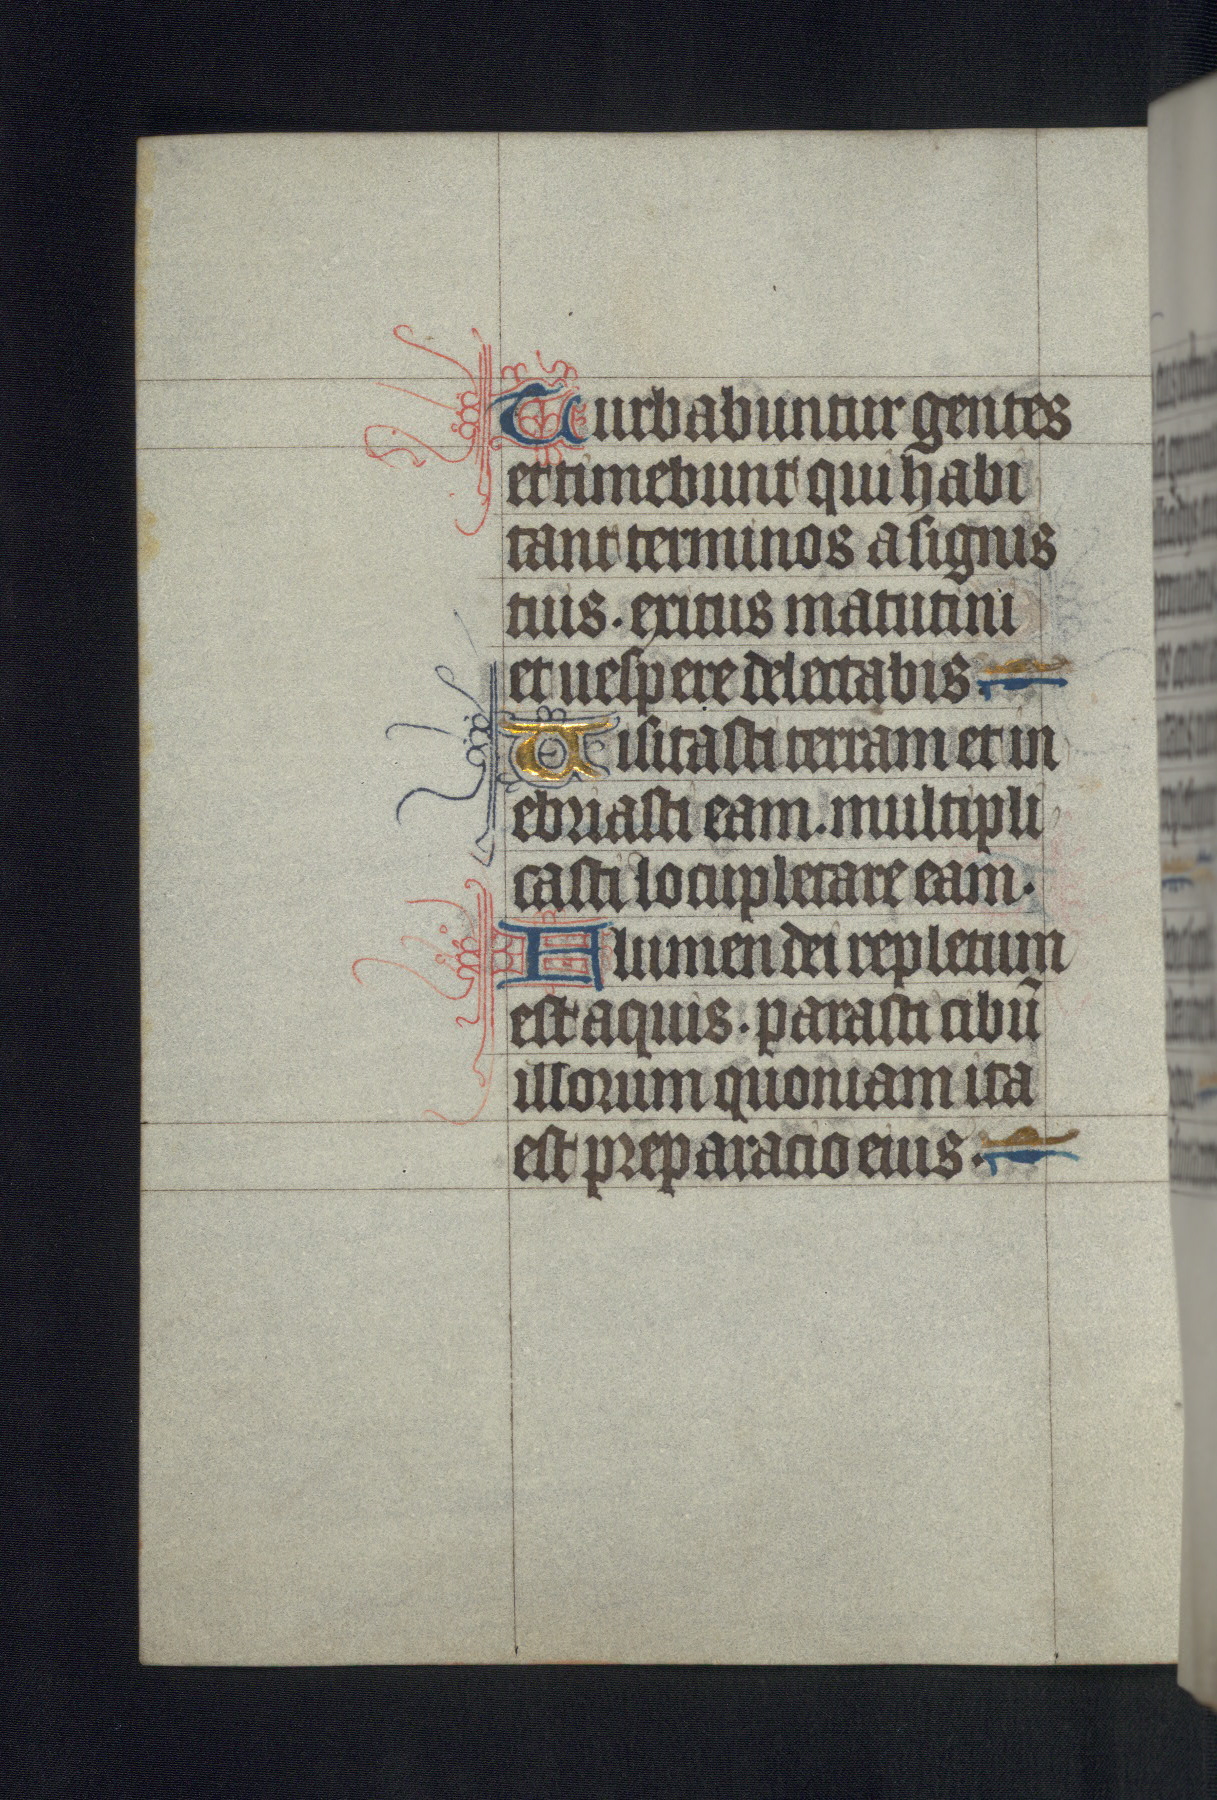 Turbabuntur gentes
et timebunt qui habi
tant terminos a signis
tuis. exitus matutini
et uespere delectabis.
Uisitasti terram et in
ebriasti eam. multipli
casti locupletare eam.
Flumen dei repletum
est aquis. parasti cibū
illorum quoniam ita
est preparacio eius.